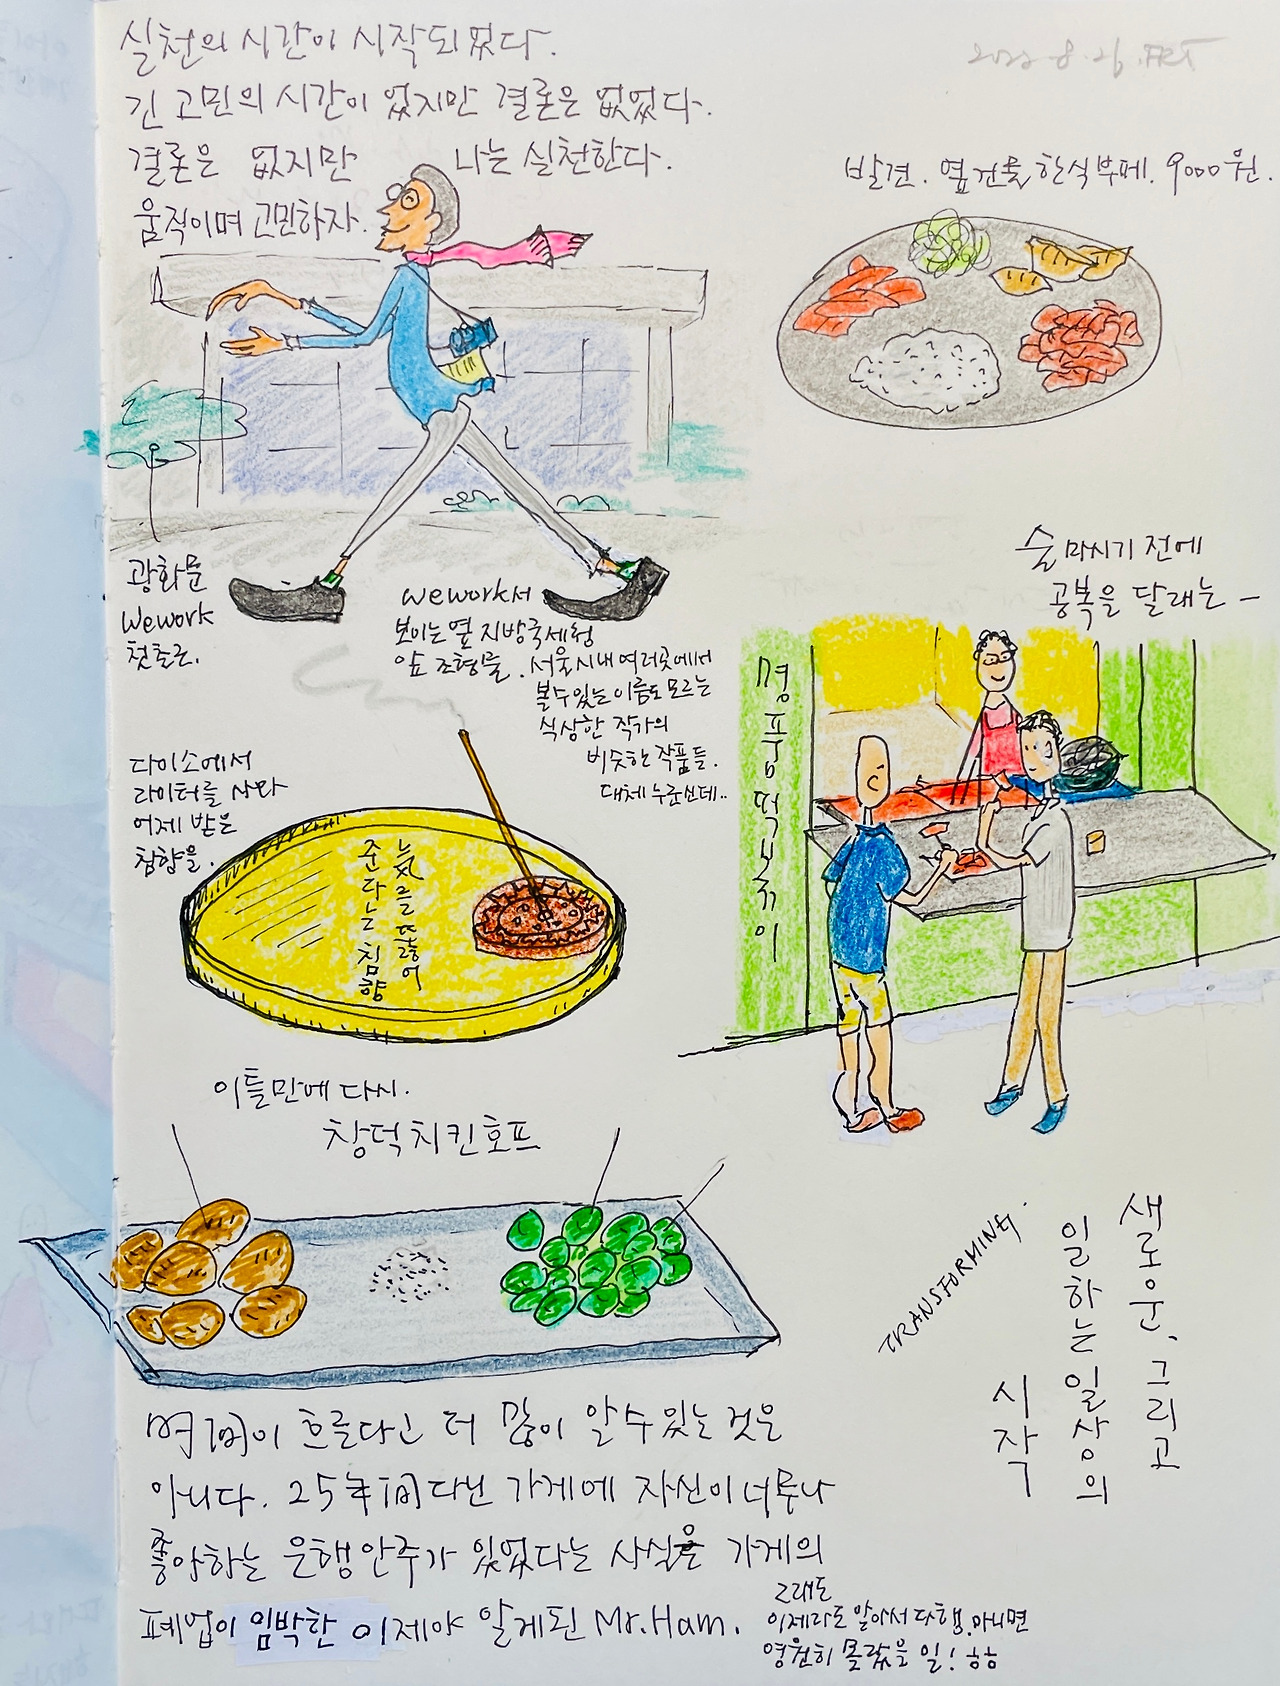 실천의 시간이 시작되었다.
긴 고민의 시간이 있었지만 결론은 없었다.
결론은 없지만 나는 실천한다.
움직이며 고민하자.
2022.8.26.FRI
발견. 옆건물 한식부페. 9000원.
광화문
wework
첫출근.
wework서
보이는 옆 지방국세청
앞 조형물. 서울시내 여러곳에서
볼수있는 이름도 모르는
식상한 작가의
비슷한 작품들.
대체 누군신데..
술 마시기 전에
공복을 달래는 -
명품떡볶이
다이소에서
라이터를 사다
어제 받은
침향을.
氣를 뚫어
준다는 침향
이틀만에 다시.
창덕치킨호프
새로운, 그리고
일하는 일상의
시작
TRANSFORMING.
時間이 흐른다고 더 많이 알 수 있는 것은
아니다. 25年間 다닌 가게에 자신이 너무나
좋아하는 은행안주가 있었다는 사실을 가게의
폐업이 임박한 이제야 알게된 Mr.Ham.
그래도
이제라도 알아서 다행. 아니면
영원히 몰랐을 일! ㅎㅎ